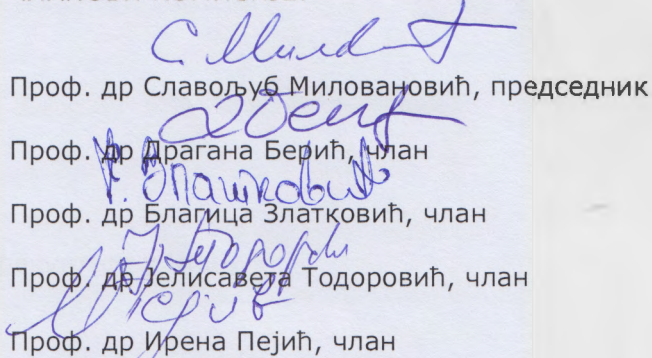 Проф. др Славољуб Миловановић, председник
Проф. др Драгана Берић, члан
Проф. др Благица Златковић, члан
Проф. др Јелисавета Тодоровић, члан
Проф. др Ирена Пејић, члан